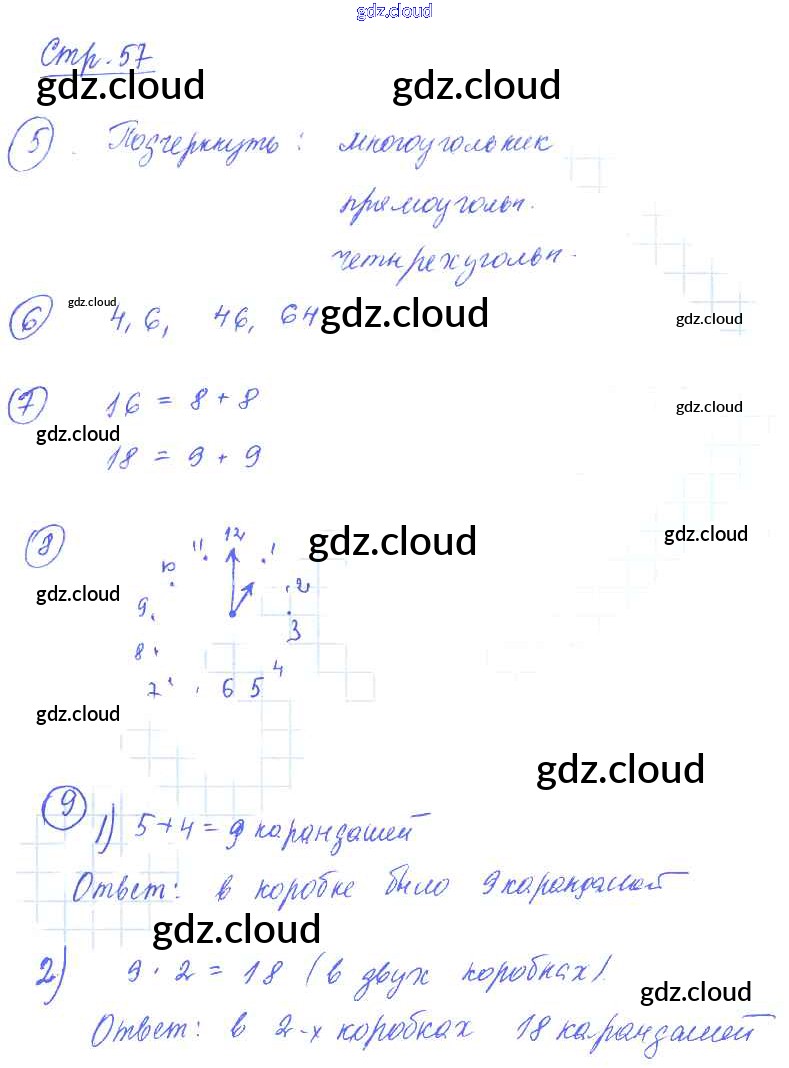 gdz.cloud
Стр. 57
gdz.cloud gdz.cloud
5. Подчеркнуть: многоугольник
прямоугольн.
четырехугольн.
gdz.cloud
6 4, 6, 46, 64 gdz.cloud gdz.cloud
7 16 = 8 + 8 gdz.cloud
gdz.cloud
18 = 9 + 9
8 11 12 1 gdz.cloud gdz.cloud
10 2 gdz.cloud
9 3
8 4
7 6 5
gdz.cloud
gdz.cloud
9 1) 5+4=9 карандашей
Ответ: в коробке было 9 карандашей
gdz.cloud
2) 9 · 2 = 18 (в двух коробках).
gdz.cloud
Ответ: в 2-х коробках 18 карандашей